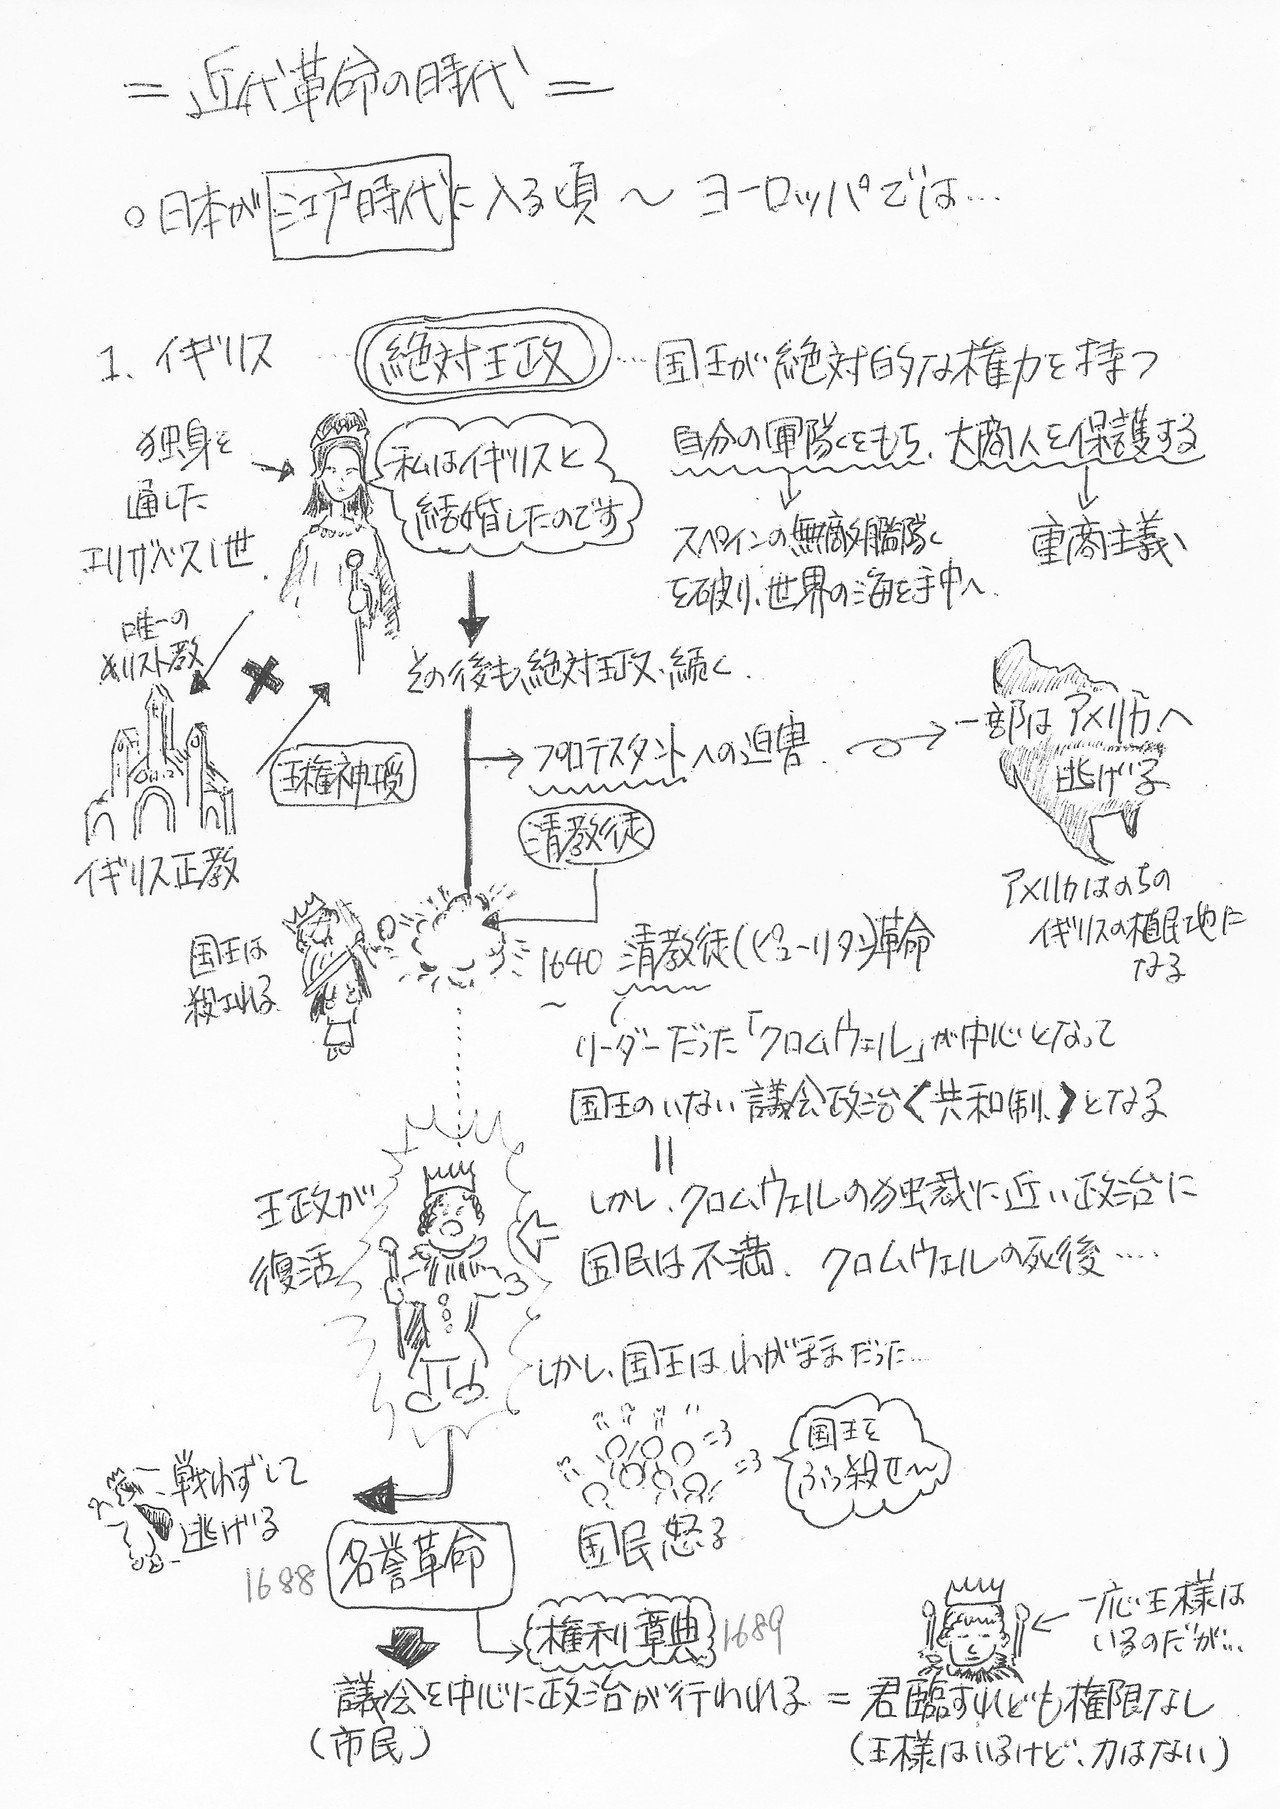 ＝近代革命の時代＝
○日本が江戸時代に入る頃～ヨーロッパでは…
1. イギリス …… 絶対王政 …… 国王が絶対的な権力を持つ
自分の軍隊をもち、大商人を保護する
スペインの無敵艦隊
を破り、世界の海を手中へ
重商主義
独身を
通した
エリザベス1世
私はイギリスと
結婚したのです
その後も絶対王政続く
唯一の
キリスト教
イギリス正教
王権神授
プロテスタントへの迫害
一部はアメリカへ
逃げる
アメリカはのちの
イギリスの植民地に
なる
清教徒
国王は
殺される
1640～ 清教徒(ピューリタン)革命
リーダーだった「クロムウェル」が中心となって
国王のいない議会政治〈共和制〉となる
しかし、クロムウェルの独裁に近い政治に
国民は不満、クロムウェルの死後……
王政が
復活
しかし、国王はわがままだった…
国王を
ぶっ殺せ～
国民怒る
戦わずして
逃げる
1688 名誉革命
権利章典 1689
議会を中心に政治が行われる ＝ 君臨すれども権限なし
(市民)
(王様はいるけど、力はない)
一応王様は
いるのだが…